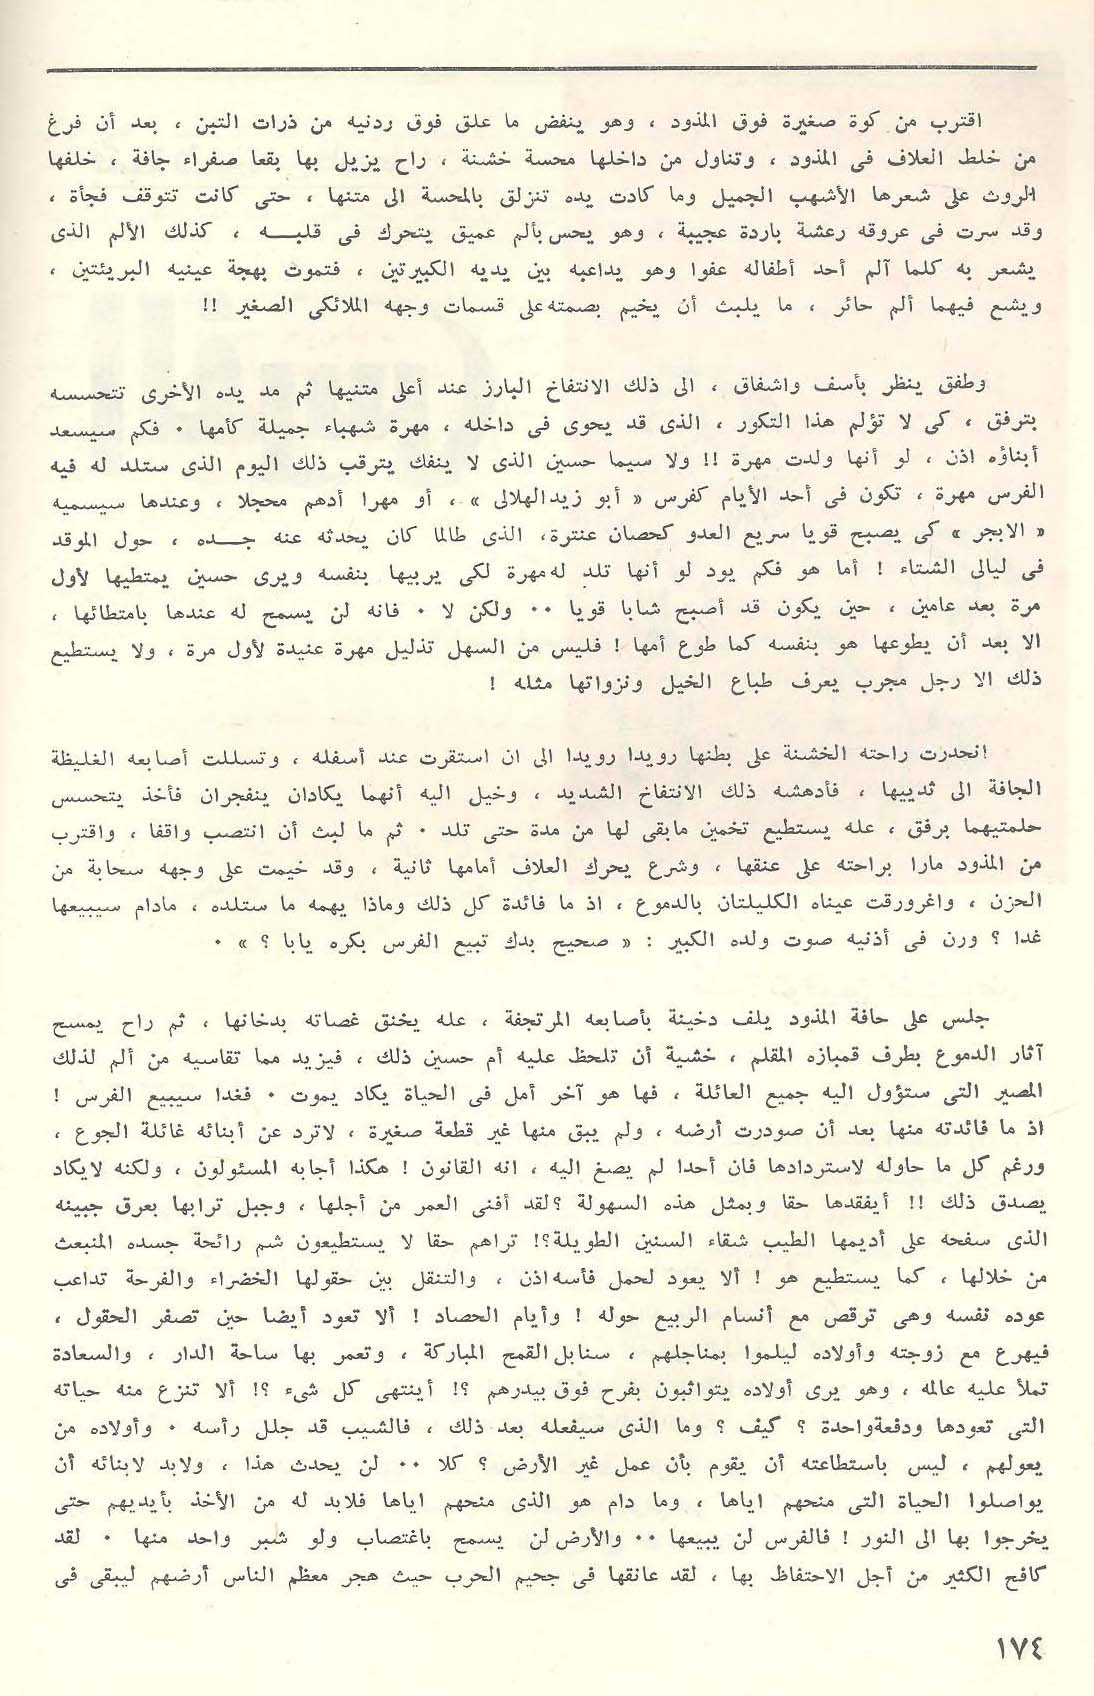 اقترب من كوة صغيرة فوق المذود ، وهو ينفض ما علق فوق ردنيه من ذرات التبن ، بعد أن فرغ
من خلط العلاف فى المذود ، وتناول من داخلها محسة خشنة ، راح يزيل بها بقعا صفراء جافة ، خلفها
الروث على شعرها الأشهب الجميل وما كادت يده تنزلق بالمحسة الى متنها ، حتى كانت تتوقف فجأة ،
وقد سرت فى عروقه رعشة باردة عجيبة ، وهو يحس بألم عميق يتحرك فى قلبـــه ، كذلك الألم الذى
يشعر به كلما آلم أحد أطفاله عفوا وهو يداعبه بين يديه الكبيرتين ، فتموت بهجة عينيه البريئتين ،
ويشع فيهما ألم حائر ، ما يلبث أن يخيم بصمته على قسمات وجهه الملائكى الصغير !!
وطفق ينظر بأسف واشفاق ، الى ذلك الانتفاخ البارز عند أعلى متنيها ثم مد يده الأخرى تتحسسه
بترفق ، كى لا تؤلم هذا التكور ، الذى قد يحوى فى داخله ، مهرة شهباء جميلة كأمها ٠ فكم سيسعد
أبناؤه اذن ، لو أنها ولدت مهرة !! ولا سيما حسين الذى لا ينفك يترقب ذلك اليوم الذى ستلد له فيه
الفرس مهرة ، تكون فى أحد الأيام كفرس « أبو زيد الهلالى » ، أو مهرا أدهم محجلا ، وعندها سيسميه
« الابجر » كى يصبح قويا سريع العدو كحصان عنترة، الذى طالما كان يحدثه عنه جـــده ، حول الموقد
فى ليالى الشتاء ! أما هو فكم يود لو أنها تلد له مهرة لكى يربيها بنفسه ويرى حسين يمتطيها لأول
مرة بعد عامين ، حين يكون قد أصبح شابا قويا ٠٠ ولكن لا ٠ فانه لن يسمح له عندها بامتطائها ،
الا بعد أن يطوعها هو بنفسه كما طوع أمها ! فليس من السهل تذليل مهرة عنيدة لأول مرة ، ولا يستطيع
ذلك الا رجل مجرب يعرف طباع الخيل ونزواتها مثله !
انحدرت راحته الخشنة على بطنها رويدا رويدا الى ان استقرت عند أسفله ، وتسللت أصابعه الغليظة
الجافة الى ثدييها ، فأدهشه ذلك الانتفاخ الشديد ، وخيل اليه أنهما يكادان ينفجران فأخذ يتحسس
حلمتيهما برفق ، عله يستطيع تخمين مابقى لها من مدة حتى تلد ٠ ثم ما لبث أن انتصب واقفا ، واقترب
من المذود مارا براحته على عنقها ، وشرع يحرك العلاف أمامها ثانية ، وقد خيمت على وجهه سحابة من
الحزن ، واغرورقت عيناه الكليلتان بالدموع ، اذ ما فائدة كل ذلك وماذا يهمه ما ستلده ، مادام سيبيعها
غدا ؟ ورن فى أذنيه صوت ولده الكبير : « صحيح بدك تبيع الفرس بكره يابا ؟ » ٠
جلس على حافة المذود يلف دخينة بأصابعه المرتجفة ، عله يخنق غصاته بدخانها ، ثم راح يمسح
آثار الدموع بطرف قمبازه المقلم ، خشية أن تلحظ عليه أم حسين ذلك ، فيزيد مما تقاسيه من ألم لذلك
المصير التى ستؤول اليه جميع العائلة ، فها هو آخر أمل فى الحياة يكاد يموت ٠ فغدا سيبيع الفرس !
اذ ما فائدته منها بعد أن صودرت أرضه ، ولم يبق منها غير قطعة صغيرة ، لاترد عن أبنائه غائلة الجوع ،
ورغم كل ما حاوله لاستردادها فان أحدا لم يصغ اليه ، انه القانون ! هكذا أجابه المسئولون ، ولكنه لايكاد
يصدق ذلك !! أيفقدها حقا وبمثل هذه السهولة ؟ لقد أفنى العمر من أجلها ، وجبل ترابها بعرق جبينه
الذى سفحه على أديمها الطيب شقاء السنين الطويلة؟! تراهم حقا لا يستطيعون شم رائحة جسده المنبعث
من خلالها ، كما يستطيع هو ! ألا يعود لحمل فأسه اذن ، والتنقل بين حقولها الخضراء والفرحة تداعب
عوده نفسه وهى ترقص مع أنسام الربيع حوله ! وأيام الحصاد ! ألا تعود أيضا حين تصفر الحقول ،
فيهرع مع زوجته وأولاده ليلموا بمناجلهم ، سنابل القمح المباركة ، وتعمر بها ساحة الدار ، والسعادة
تملأ عليه عالمه ، وهو يرى أولاده يتواثبون بفرح فوق بيدرهم ؟! أينتهى كل شىء ؟! ألا تنزع منه حياته
التى تعودها ودفعة واحدة ؟ كيف ؟ وما الذى سيفعله بعد ذلك ، فالشيب قد جلل رأسه ٠ وأولاده من
يعولهم ، ليس باستطاعته أن يقوم بأن عمل غير الأرض ؟ كلا ٠٠ لن يحدث هذا ، ولابد لابنائه أن
يواصلوا الحياة التى منحهم اياها ، وما دام هو الذى منحهم اياها فلابد له من الأخذ بأيديهم حتى
يخرجوا بها الى النور ! فالفرس لن يبيعها ٠٠ والأرض لن يسمح باغتصاب ولو شبر واحد منها ٠ لقد
كافح الكثير من أجل الاحتفاظ بها ، لقد عانقها فى جحيم الحرب حيث هجر معظم الناس أرضهم ليبقى فى
١٧٤